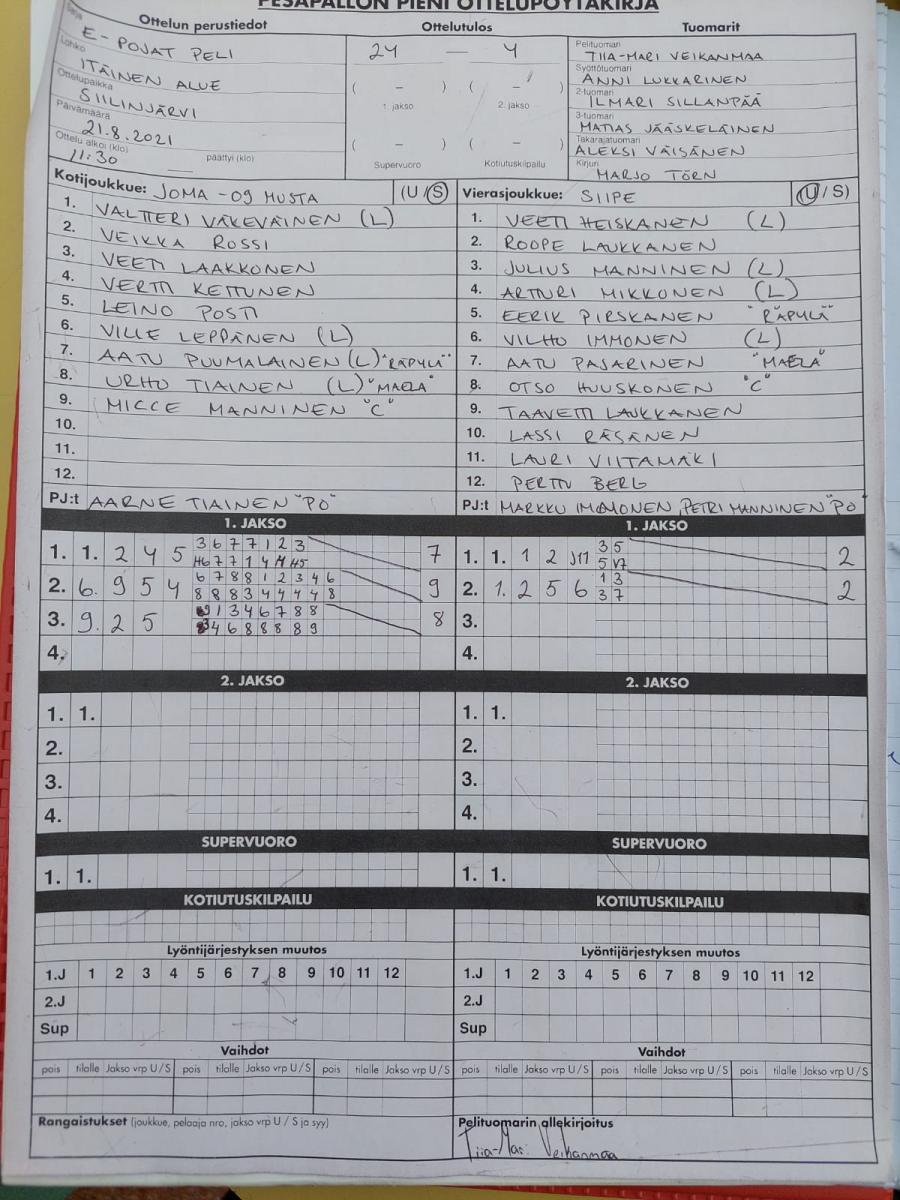 PESÄPALLON PIENI OTTELUPÖYTÄKIRJA
Ottelun perustiedot
Sarja
E-POJAT PELI
Lohko
ITÄINEN ALUE
Ottelupaikka
SIILINJÄRVI
Päivämäärä
21.8.2021
Ottelu alkoi (klo) päättyi (klo)
11:30
Ottelutulos
24 — 4
( – ) ( – )
1. jakso 2. jakso
( – ) ( – )
Supervuoro Kotiutuskilpailu
Tuomarit
Pelituomari
TIIA-MARI VEIKANMAA
Syöttötuomari
ANNI LUKKARINEN
2-tuomari
ILMARI SILLANPÄÄ
3-tuomari
MATIAS JÄÄSKELÄINEN
Takarajatuomari
ALEKSI VÄISÄNEN
Kirjuri
MARJO TÖRN
Kotijoukkue: JOMA-09 MUSTA (U/S)
1. VALTTERI VÄKEVÄINEN (L)
2. VEIKKA ROSSI
3. VEETI LAAKKONEN
4. VERTTI KETTUNEN
5. LEINO POSTI
6. VILLE LEPPÄNEN (L)
7. AATU PUUMALAINEN (L) "RÄPYLÄ"
8. URHO TIAINEN (L) "MAILA"
9. MICCE MANNINEN "C"
10.
11.
12.
PJ:t AARNE TIAINEN "PO"
Vierasjoukkue: SIIPE (U/S)
1. VEETI HEISKANEN (L)
2. ROOPE LAUKKANEN
3. JULIUS MANNINEN (L)
4. ARTTURI MIKKONEN (L)
5. EERIK PIRSKANEN "RÄPYLÄ"
6. VILHO IMMONEN (L)
7. AATU PASARINEN "MAILA"
8. OTSO HUUSKONEN "C"
9. TAAVETTI LAUKKANEN
10. LASSI RÄSÄNEN
11. LAURI VIITAMÄKI
12. PERTTU BERG
PJ:t MARKKU IMMONEN PETRI MANNINEN "PO"
1. JAKSO
1. 1. 2 4 5 3 6 7 7 1 2 3 7
H6 7 7 1 4 H H5
2. 6. 9 5 4 6 7 8 8 1 2 3 4 6 9
8 8 8 3 4 4 4 4 8
3. 9. 2 5 9 1 3 4 6 7 8 8 8
3 4 6 8 8 8 8 9
4.
1. JAKSO
1. 1. 1 2 J11 3 5 2
5 V7
2. 1. 2 5 6 1 3 2
3 7
3.
4.
2. JAKSO
1. 1.
2.
3.
4.
2. JAKSO
1. 1.
2.
3.
4.
SUPERVUORO
1. 1.
SUPERVUORO
1. 1.
KOTIUTUSKILPAILU
KOTIUTUSKILPAILU
Lyöntijärjestyksen muutos
1.J 1 2 3 4 5 6 7 8 9 10 11 12
2.J
Sup
Lyöntijärjestyksen muutos
1.J 1 2 3 4 5 6 7 8 9 10 11 12
2.J
Sup
Vaihdot
pois tilalle Jakso vrp U/S pois tilalle Jakso vrp U/S pois tilalle Jakso vrp U/S
Vaihdot
pois tilalle Jakso vrp U/S pois tilalle Jakso vrp U/S pois tilalle Jakso vrp U/S
Rangaistukset (joukkue, pelaaja nro, jakso vrp U/S ja syy)
Pelituomarin allekirjoitus
Tiia-Mari Veikanmaa